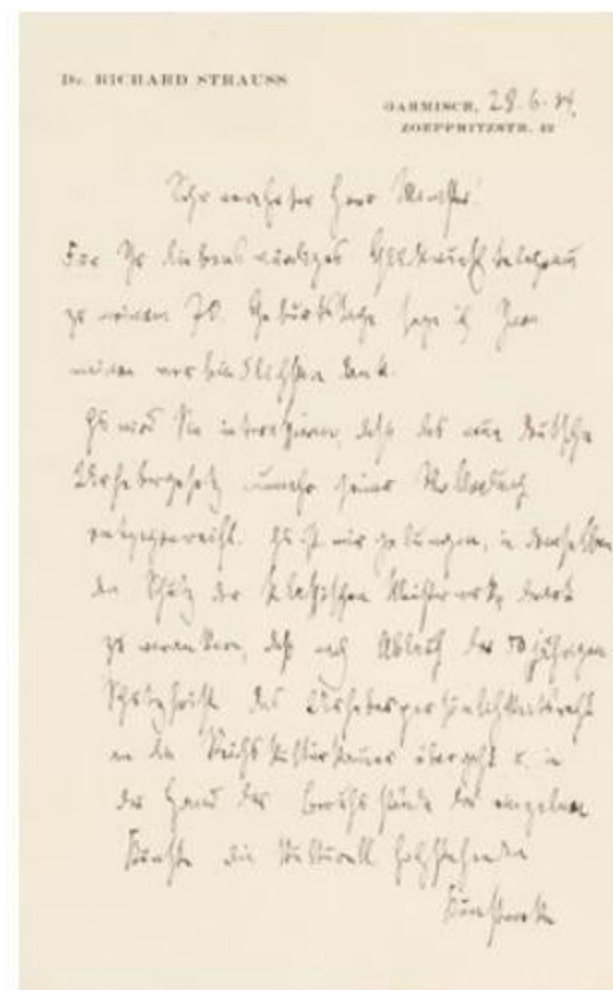 Dr. RICHARD STRAUSS
GARMISCH, 28.6.34.
ZOEPPRITZSTR. 42
Sehr verehrter Herr Minister!
Für Ihr liebenswürdiges Glückwunschtelegramm
zu meinem 70. Geburtstage sage ich Ihnen
meinen verbindlichsten Dank.
Es wird Sie interessieren, daß das neue deutsche
Urhebergesetz nunmehr seiner Vollendung
entgegenreift. Es ist mir gelungen, in demselben
den Schutz der klassischen Meisterwerke derart
zu verankern, daß nach Ablauf der 50 jährigen
Schutzfrist das Urheberpersönlichkeitsrecht
an die Reichskulturkammer übergeht u. in
der Hand der Berufsstände der einzelnen
Künste die kulturell hochstehenden
Kunstwerke